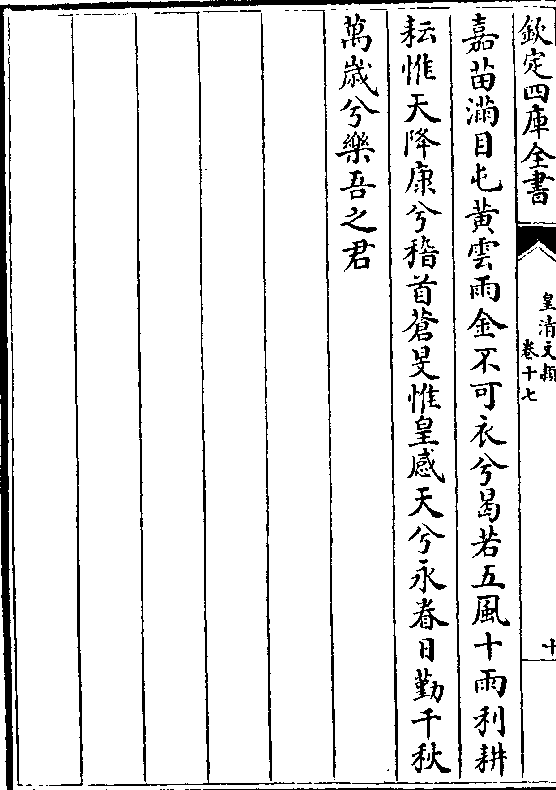 欽定四庫全書
皇清文頴
卷十七
十
嘉苗滿目屯黄雲雨金不可衣兮曷若五風十雨利耕
耘惟天降康兮稽首蒼旻惟皇感天兮永眷日勤千秋
萬歲兮樂吾之君